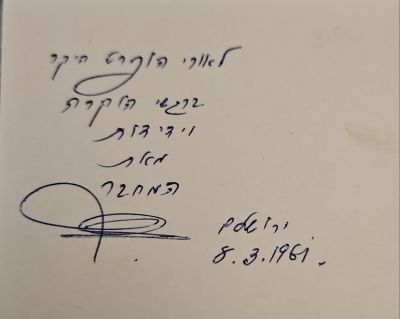 לאורי היקר
ברגשי הוקרה
וידידות
מאת
המחבר
ירושלים
8.3.1961.